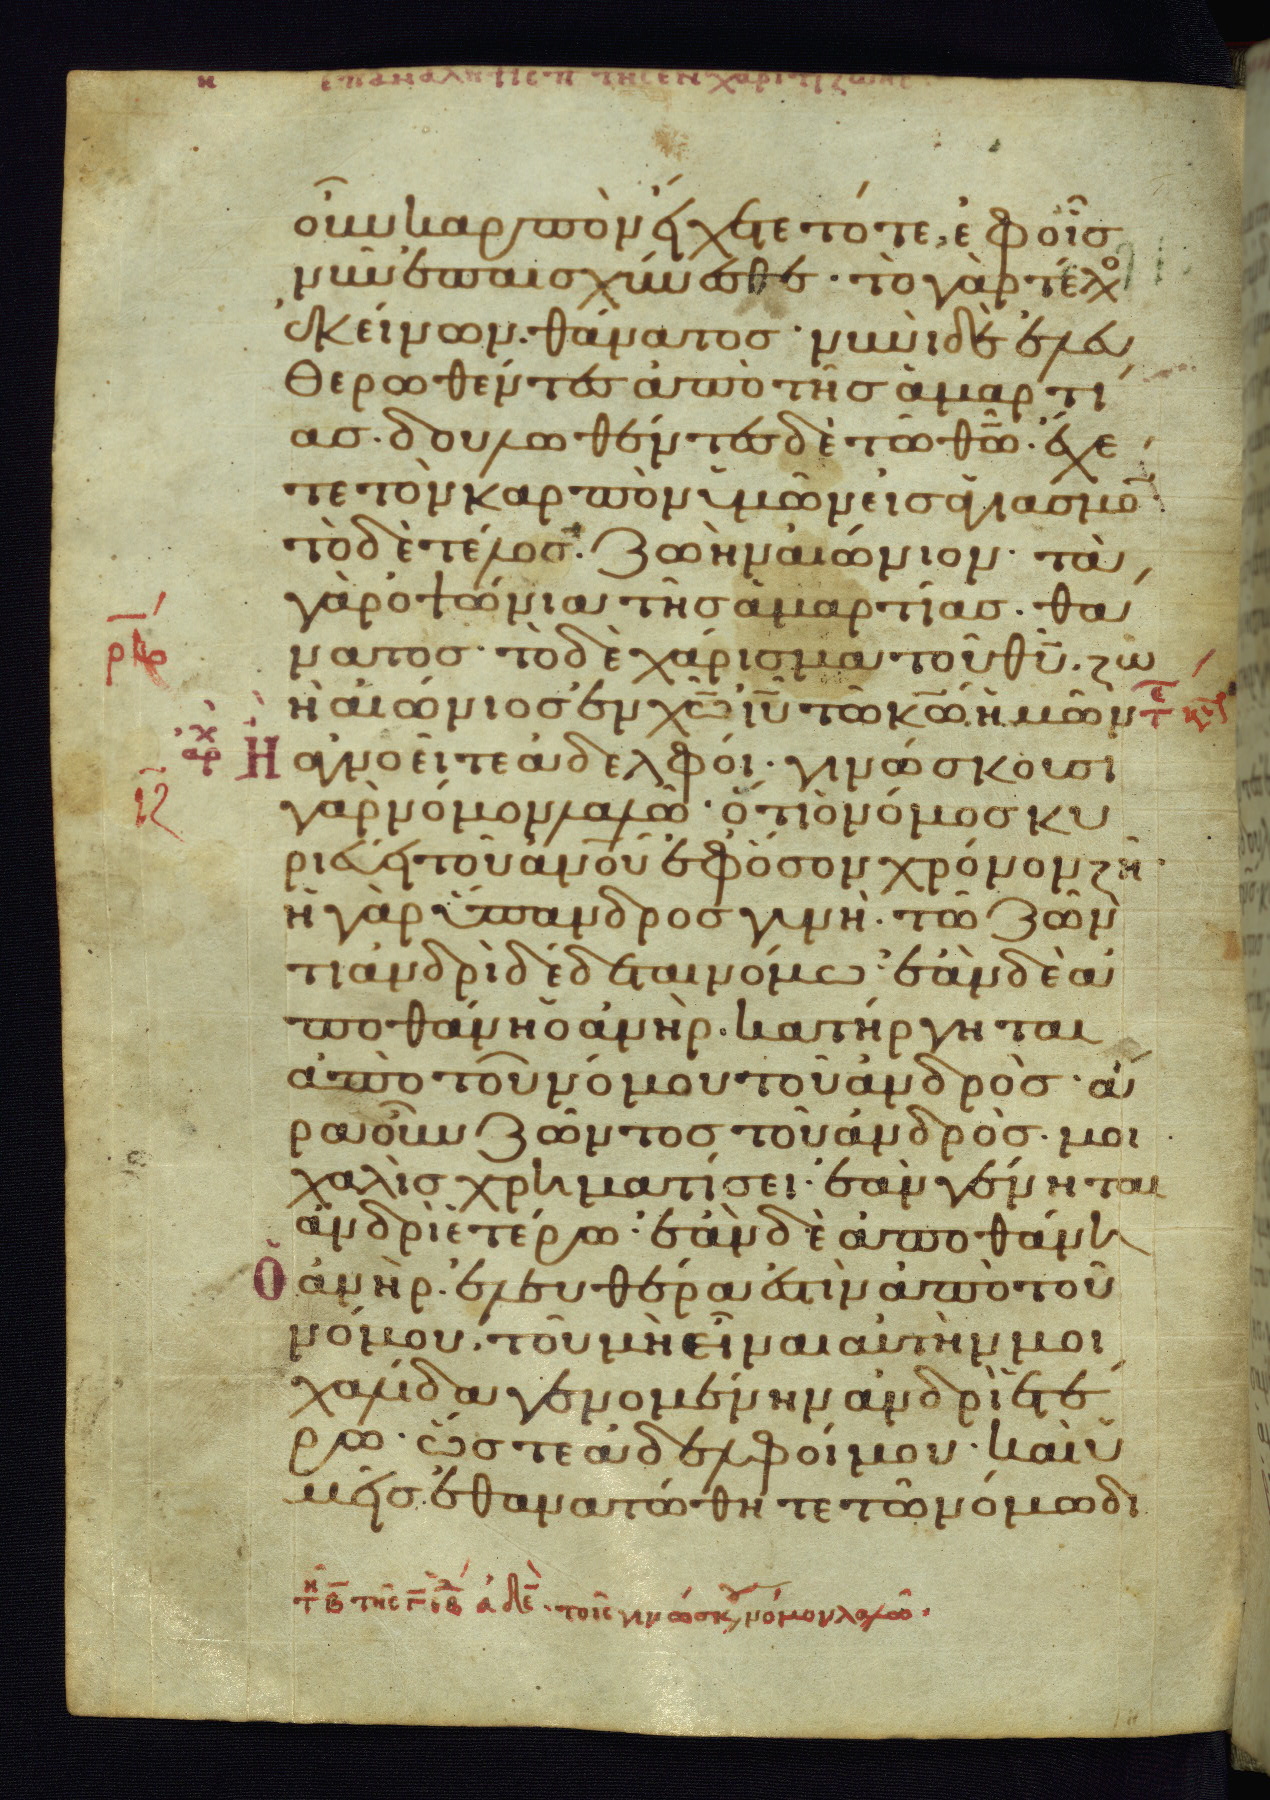 οὖν καρπὸν εἴχετε τότε, ἐφ οἷς
νῦν ἐπαισχύνεσθε· τὸ γὰρ τέλο
ἐκείνων. θάνατος· νυνὶ δὲ ἐλευ
θερωθέντες ἀπὸ τῆς ἁμαρτί
ας. δουλωθέντες δὲ τῶ θῶ. ἔχε
τε τὸν καρπὸν ὑμῶν εἰς ἁγιασμὸ
τὸ δὲ τέλος. ζωὴν αἰώνιον· τὰ
γὰρ ὀψώνια τῆς ἁμαρτίας. θά
νατος· τὸ δὲ χάρισμα τοῦ θῦ. ζω
ὴ αἰώνιος ἐν χῶ ἰῦ τῶ κῶ ἡμῶν
Ἢ ἀγνοεῖτε ἀδελφοί· γινώσκουσι
γὰρ νόμον λαλῶ· ὅτι ὁ νόμος κυ
ριεύει τοῦ ἀνοῦ ἐφ ὅσον χρόνον ζῆ·
ἡ γὰρ ὕπανδρος γυνὴ. τῶ ζῶν
τι ἀνδρὶ δέδεται νόμω· ἐὰν δὲ ἀ
ποθάνη ὁ ἀνὴρ. κατήργηται
ἀπὸ τοῦ νόμου τοῦ ἀνδρὸς· ἄ
ρα οὖν ζῶντος τοῦ ἀνδρὸς. μοι
χαλὶς χρηματίσει· ἐὰν γένηται
ἀνδρὶ ἑτέρω· ἐὰν δὲ ἀποθάνη
Ὁ ἀνὴρ. ἐλευθέρα ἐστὶν ἀπὸ τοῦ
νόμου. τοῦ μὴ εἶναι αὐτὴν μοι
χαλίδα γενομένην ἀνδρὶ ἑτέ
ρω· ὥστε ἀδελφοί μου· καὶ ὑ
μεῖς ἐθανατώθητε τῶ νόμω δι